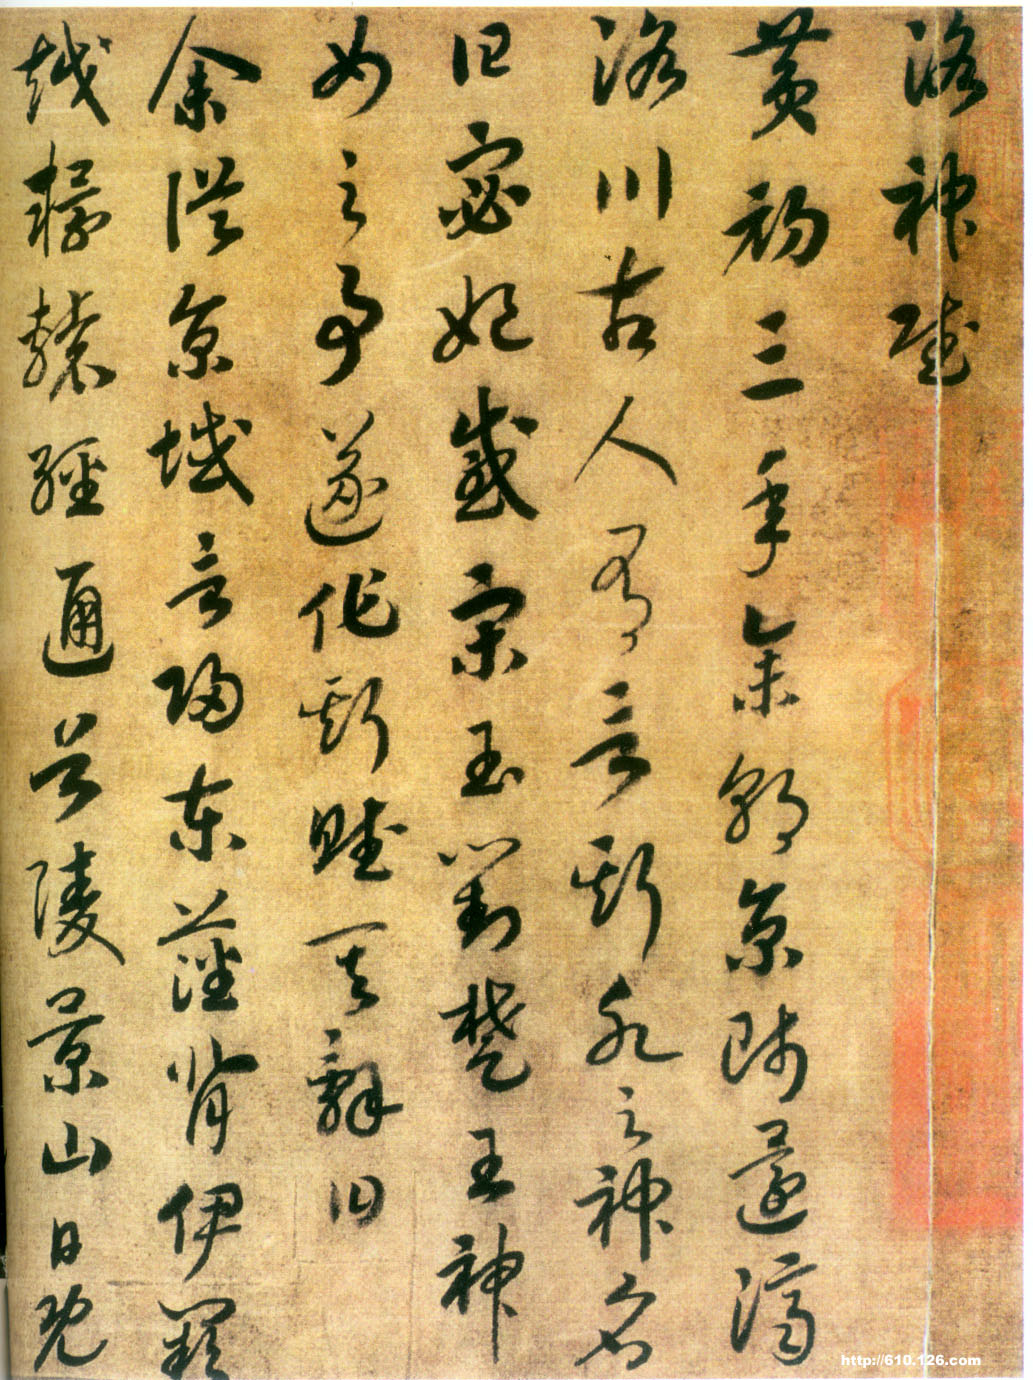 洛神賦
黃初三年余朝京師還濟
洛川古人有言斯水之神名
曰宓妃感宋玉對楚王神
女之事遂作斯賦其辭曰
余從京域言歸東藩背伊闕
越轘轅經通谷陵景山日既
http://610.126.com